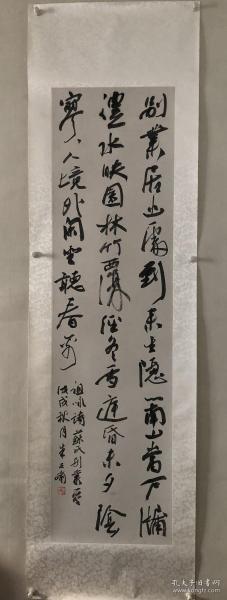 别業居幽處到来生隐心南山當户牖
灃水映園林竹覆經冬雪庭昏未夕陰
寥寥人境外閑坐聽春禽
祖咏詩蘇氏别業
戊戌秋月朱
孔夫子旧书网